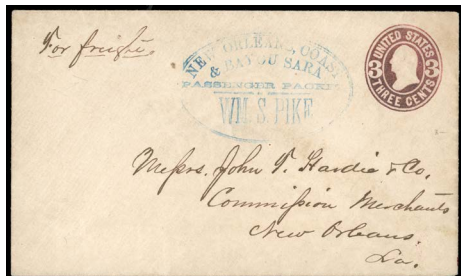 For freight
NEW ORLEANS, COAST
& BAYOU SARA
PASSENGER PACKET
WM. S. PIKE
UNITED STATES
3 3
THREE CENTS
Messrs. John T. Hardie & Co,
Commission Merchants
New Orleans.
La.